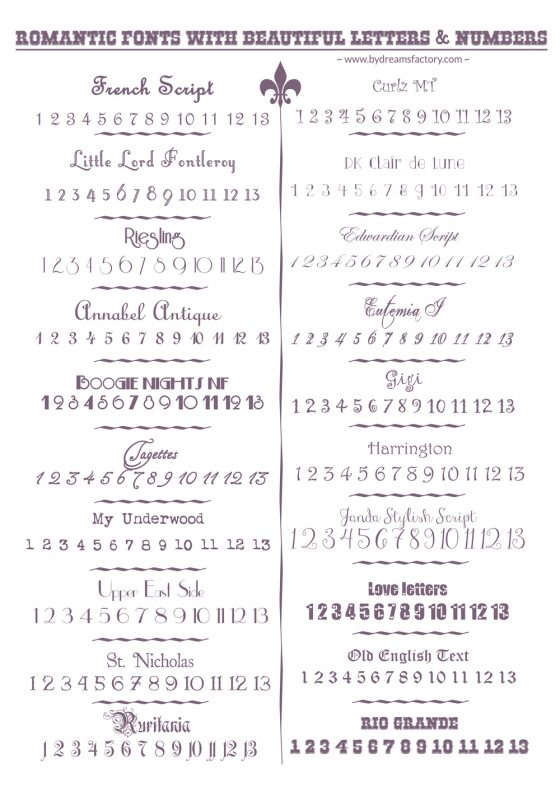 ROMANTIC FONTS WITH BEAUTIFUL LETTERS & NUMBERS
~ www.bydreamsfactory.com ~
French Script
1 2 3 4 5 6 7 8 9 10 11 12 13
Little Lord Fontleroy
1 2 3 4 5 6 7 8 9 10 11 12 13
Riesling
1 2 3 4 5 6 7 8 9 10 11 12 13
Annabel Antique
1 2 3 4 5 6 7 8 9 10 11 12 13
BOOGIE NIGHTS NF
1 2 3 4 5 6 7 8 9 10 11 12 13
Tagettes
1 2 3 4 5 6 7 8 9 10 11 12 13
My Underwood
1 2 3 4 5 6 7 8 9 10 11 12 13
Upper East Side
1 2 3 4 5 6 7 8 9 10 11 12 13
St. Nicholas
1 2 3 4 5 6 7 8 9 10 11 12 13
Ruritania
1 2 3 4 5 6 7 8 9 10 11 12 13
Curlz MT
1 2 3 4 5 6 7 8 9 10 11 12 13
DK Clair de Lune
1 2 3 4 5 6 7 8 9 10 11 12 13
Edwardian Script
1 2 3 4 5 6 7 8 9 10 11 12 13
Eutemia I
1 2 3 4 5 6 7 8 9 10 11 12 13
Gigi
1 2 3 4 5 6 7 8 9 10 11 12 13
Harrington
1 2 3 4 5 6 7 8 9 10 11 12 13
Janda Stylish Script
1 2 3 4 5 6 7 8 9 10 11 12 13
Love letters
1 2 3 4 5 6 7 8 9 10 11 12 13
Old English Text
1 2 3 4 5 6 7 8 9 10 11 12 13
RIO GRANDE
1 2 3 4 5 6 7 8 9 10 11 12 13